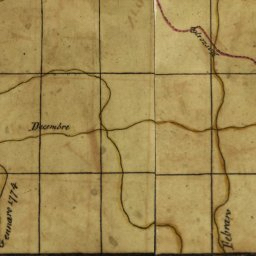 Decembre
Gennaro 1774
Febraro